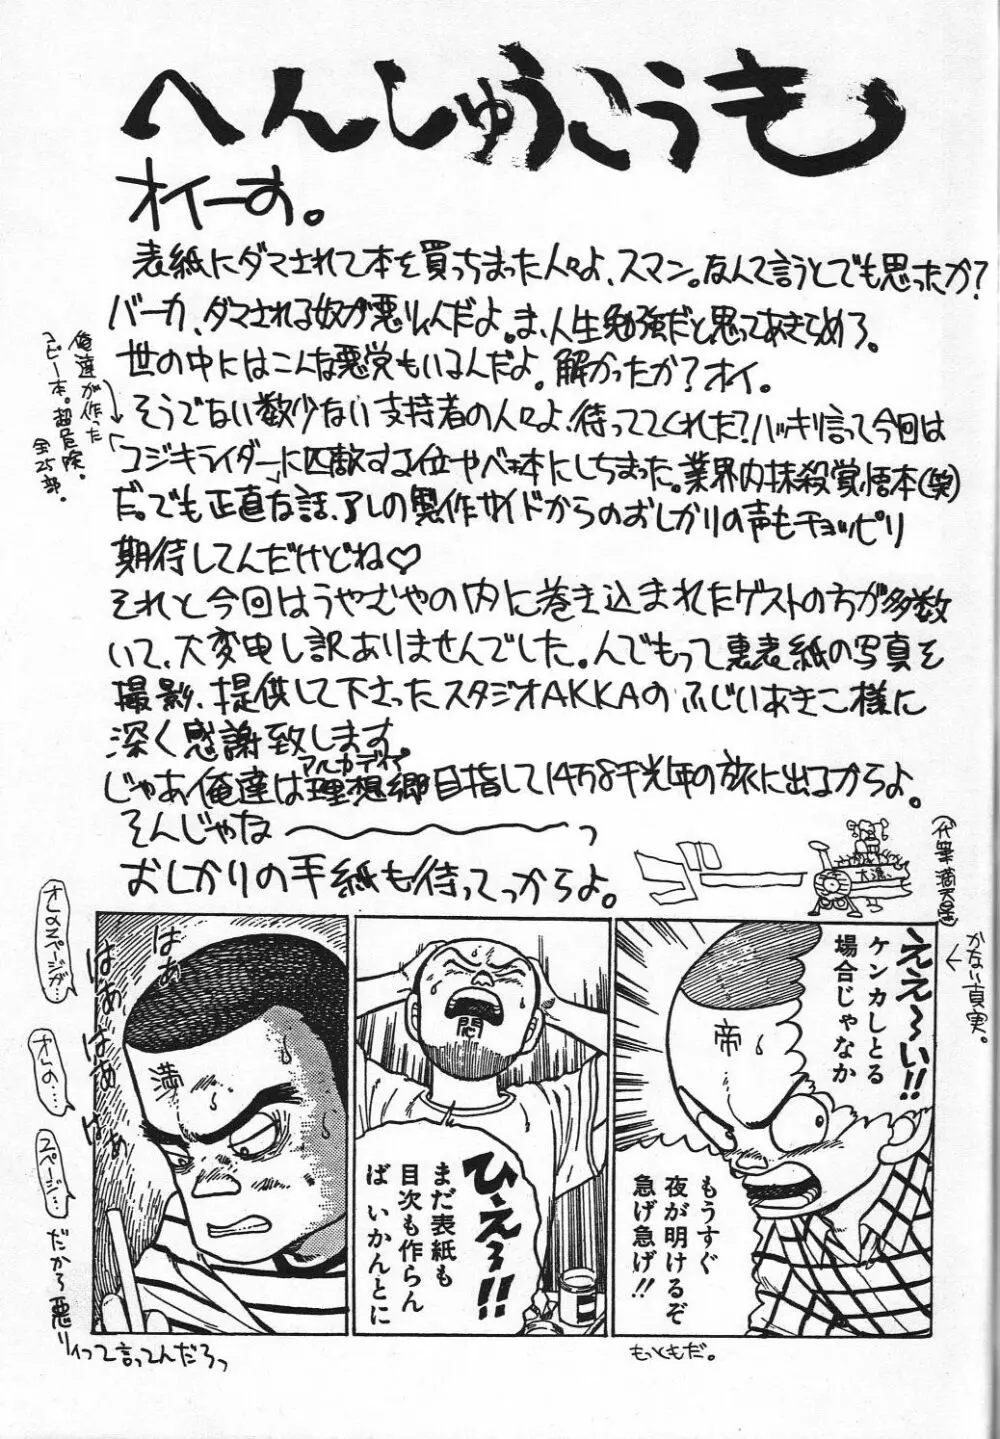 へんしゅうこうき
オイーす。
表紙にダマされて本を買っちまった人々よ、スマン。なんて言うとでも思ったか？
バーカ、ダマされる奴が悪りいんだよ。ま、人生勉強だと思ってあきらめろ。
世の中にはこんな悪党もいるんだよ。解かったか？オイ。
そうでない数少ない支持者の人々よ！待っててくれた？ハッキリ言って今回は
コジキライダーに匹敵する位ヤベェ本にしちまった。業界内抹殺覚悟本（笑）
だ。でも正直な話、アレの製作サイドからのおしかりの声もチョッピリ
期待してんだけどね♡
それと今回はうやむやの内に巻き込まれたゲストの方が多数
いて、大変申し訳ありませんでした。んでもって裏表紙の写真を
撮影、提供して下さったスタジオAKKAのふじいあきこ様に
深く感謝致します。
じゃあ俺達は理想郷目指して14万8千光年の旅に出るからよ。
アルカディア
そんじゃな〜〜〜っ
おしかりの手紙も待ってっからよ。
俺達が作った
コピー本。超危険。
全25部。
(代筆 満天星)
かない真実。
ええ〜い!!
ケンカしとる
場合じゃなか
帝
もうすぐ
夜が明けるぞ
急げ急げ!!
もっともだ。
悶
ひえ〜!!
まだ表紙も
目次も作らん
ば いかんとに
満
はぁ
はぁ
はぁ
はぁ
オレのスペースが…
オレの…
スペース…
だから悪りィって言ってんだろっ